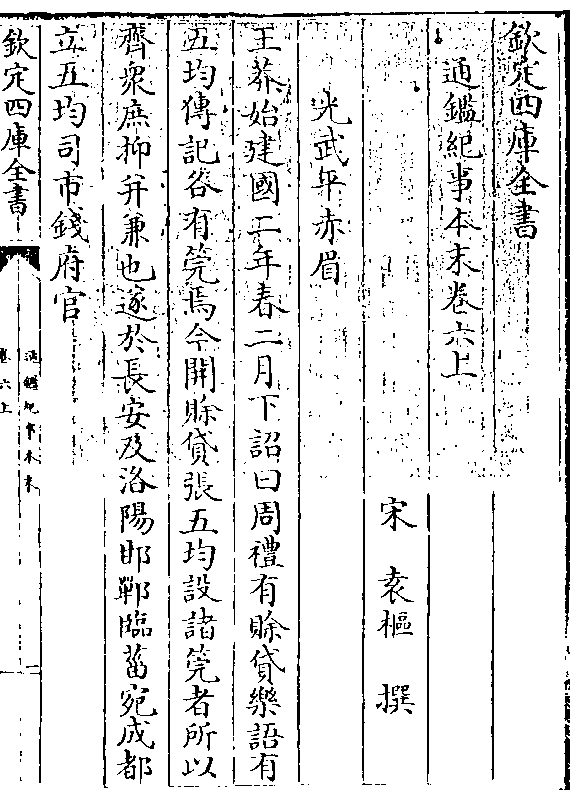 欽定四庫全書
通鑑紀事本末卷六上
宋 袁樞 撰
光武平赤眉
王莽始建國二年春二月下詔曰周禮有賒貸樂語有
五均傳記各有筦焉今開賒貸張五均設諸筦者所以
齊衆庶抑并兼也遂於長安及洛陽邯鄲臨菑宛成都
立五均司市錢府官
欽定四庫全書
通鑑紀事本末
卷六上